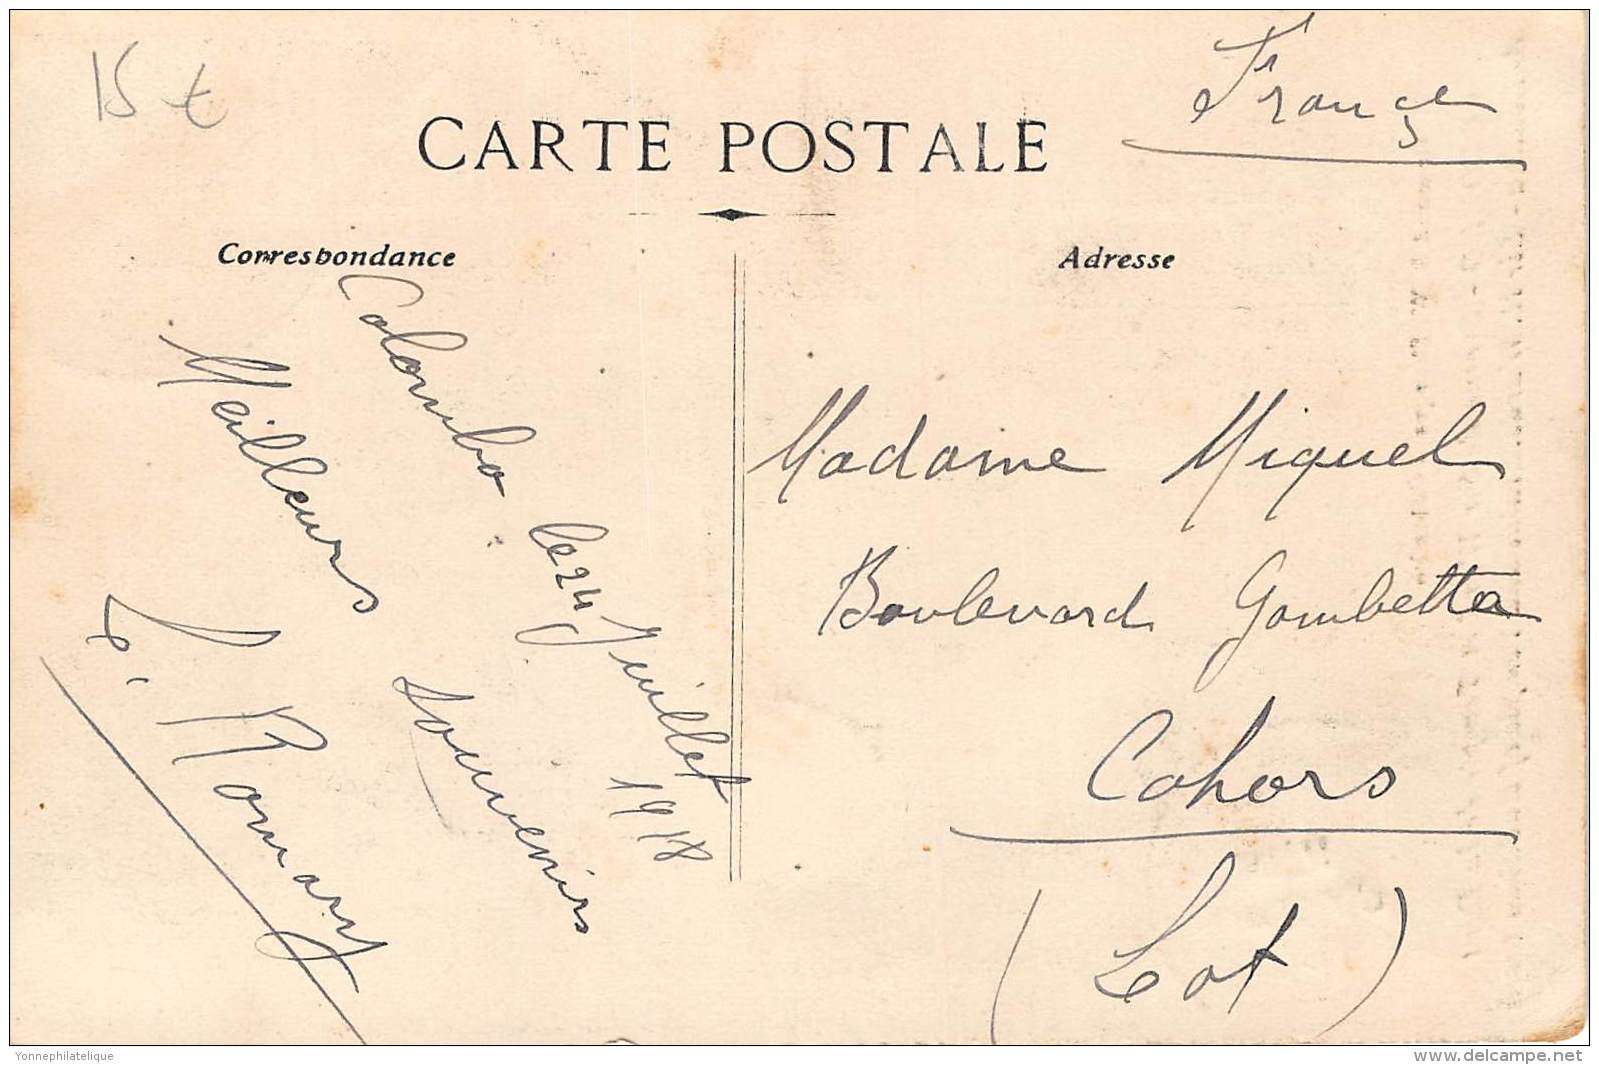 15 €
France
CARTE POSTALE
Correspondance
Adresse
Colombo le 24 Juillet 1918
Meilleurs Souvenirs
Romary
Madame Miquel
Boulevard Gambetta
Cahors
(Lot)
Yonnephilatelique
www.delcampe.net